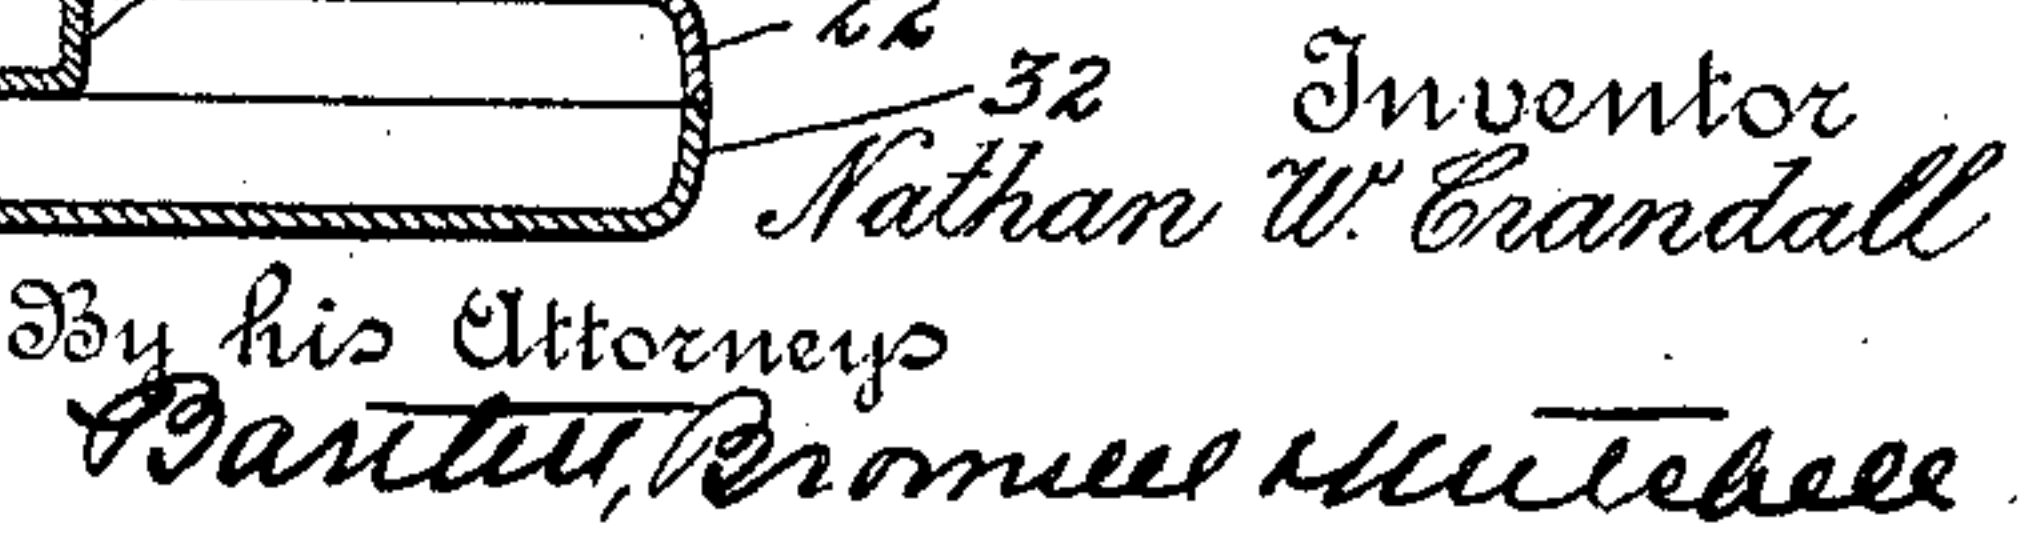 22
32 Inventor
Nathan W. Crandall
By his Attorneys
Bartlett, Brownell & Mitchell